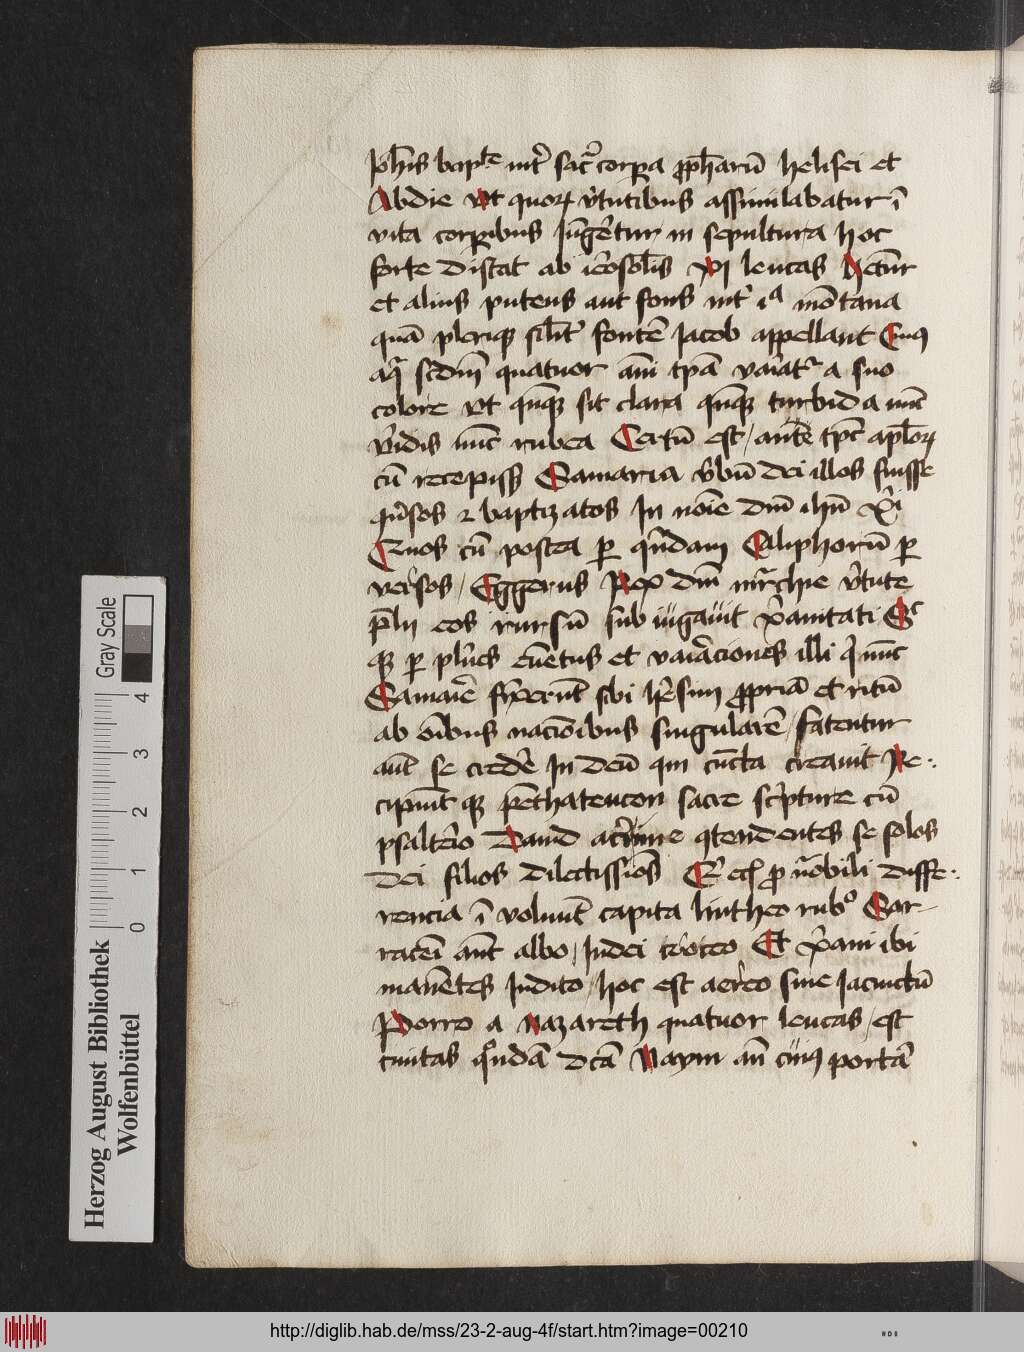 Joh̄is bapt̄e int̉ sac̉ corpa ꝓph̄arū helisei et
Abdie Vt quoꝝ v̉tutibus assimilabatur ī
vita corpibus Jūgēt̉ur in sepultura hoc
forte distat ab ih̉osol̄is xvj leucas Uet̄ur
et alius puteus aut fons int̉ iᵃ mōtana
quā pleriqꝫ sil̄it̉ fontē Jacob appellant Cuiꝰ
aq̄ scd̄m quatuor āni tp̄a vaiāt̉ a suo
colore Vt qn̄qꝫ sit clara qn̄qꝫ turbida nūc
v̉idis nūc rubea Certū est / ante tp̄e apl̄oꝝ
cū recepissꝫ Samaria v̉bū dei illos fuisse
ꝯv̉sos ⁊ baptizatos In noīe dnī ihū xp̄i
Quos cū postea ꝑ quēdam Caliphorū ꝑ
uersos / Eggerus Rex dnī mr̄chie v̉tute
p̄lij eos rursū sub iugauit xp̄anitati Sc̄
qꝫ ꝑ plūes euētus et vaiāciones illi q̉ nūc
Samaīe fixerūt sibi hēsim ꝓpriā et ritū
ab oībus nacioībus singularē / fatentur
aūt se credē In deū qui cūcta creauit Re⸗
cipiūt qꝫ pēthateucon sacre sc̉pture cū
psalt̉io Dauid acrime ꝯtendentes se solos
dei filios dilectissīos Et̉ ecī ꝓ nobili diffe⸗
rencia ī voluūt capita lintheo rubᵒ Sar⸗
racēi aūt albo / Judei c̉oceo Et xp̄ani ibi
manētes Jndico / hoc est aēreo siue Jacinctū
Porro a Nazareth quatuor leucas / est
ciuitas qōndā dc̄a Naym an̄ cuiꝰ portā
Herzog August Bibliothek
Wolfenbüttel
Gray Scale
0 1 2 3 4
http://diglib.hab.de/mss/23-2-aug-4f/start.htm?image=00210